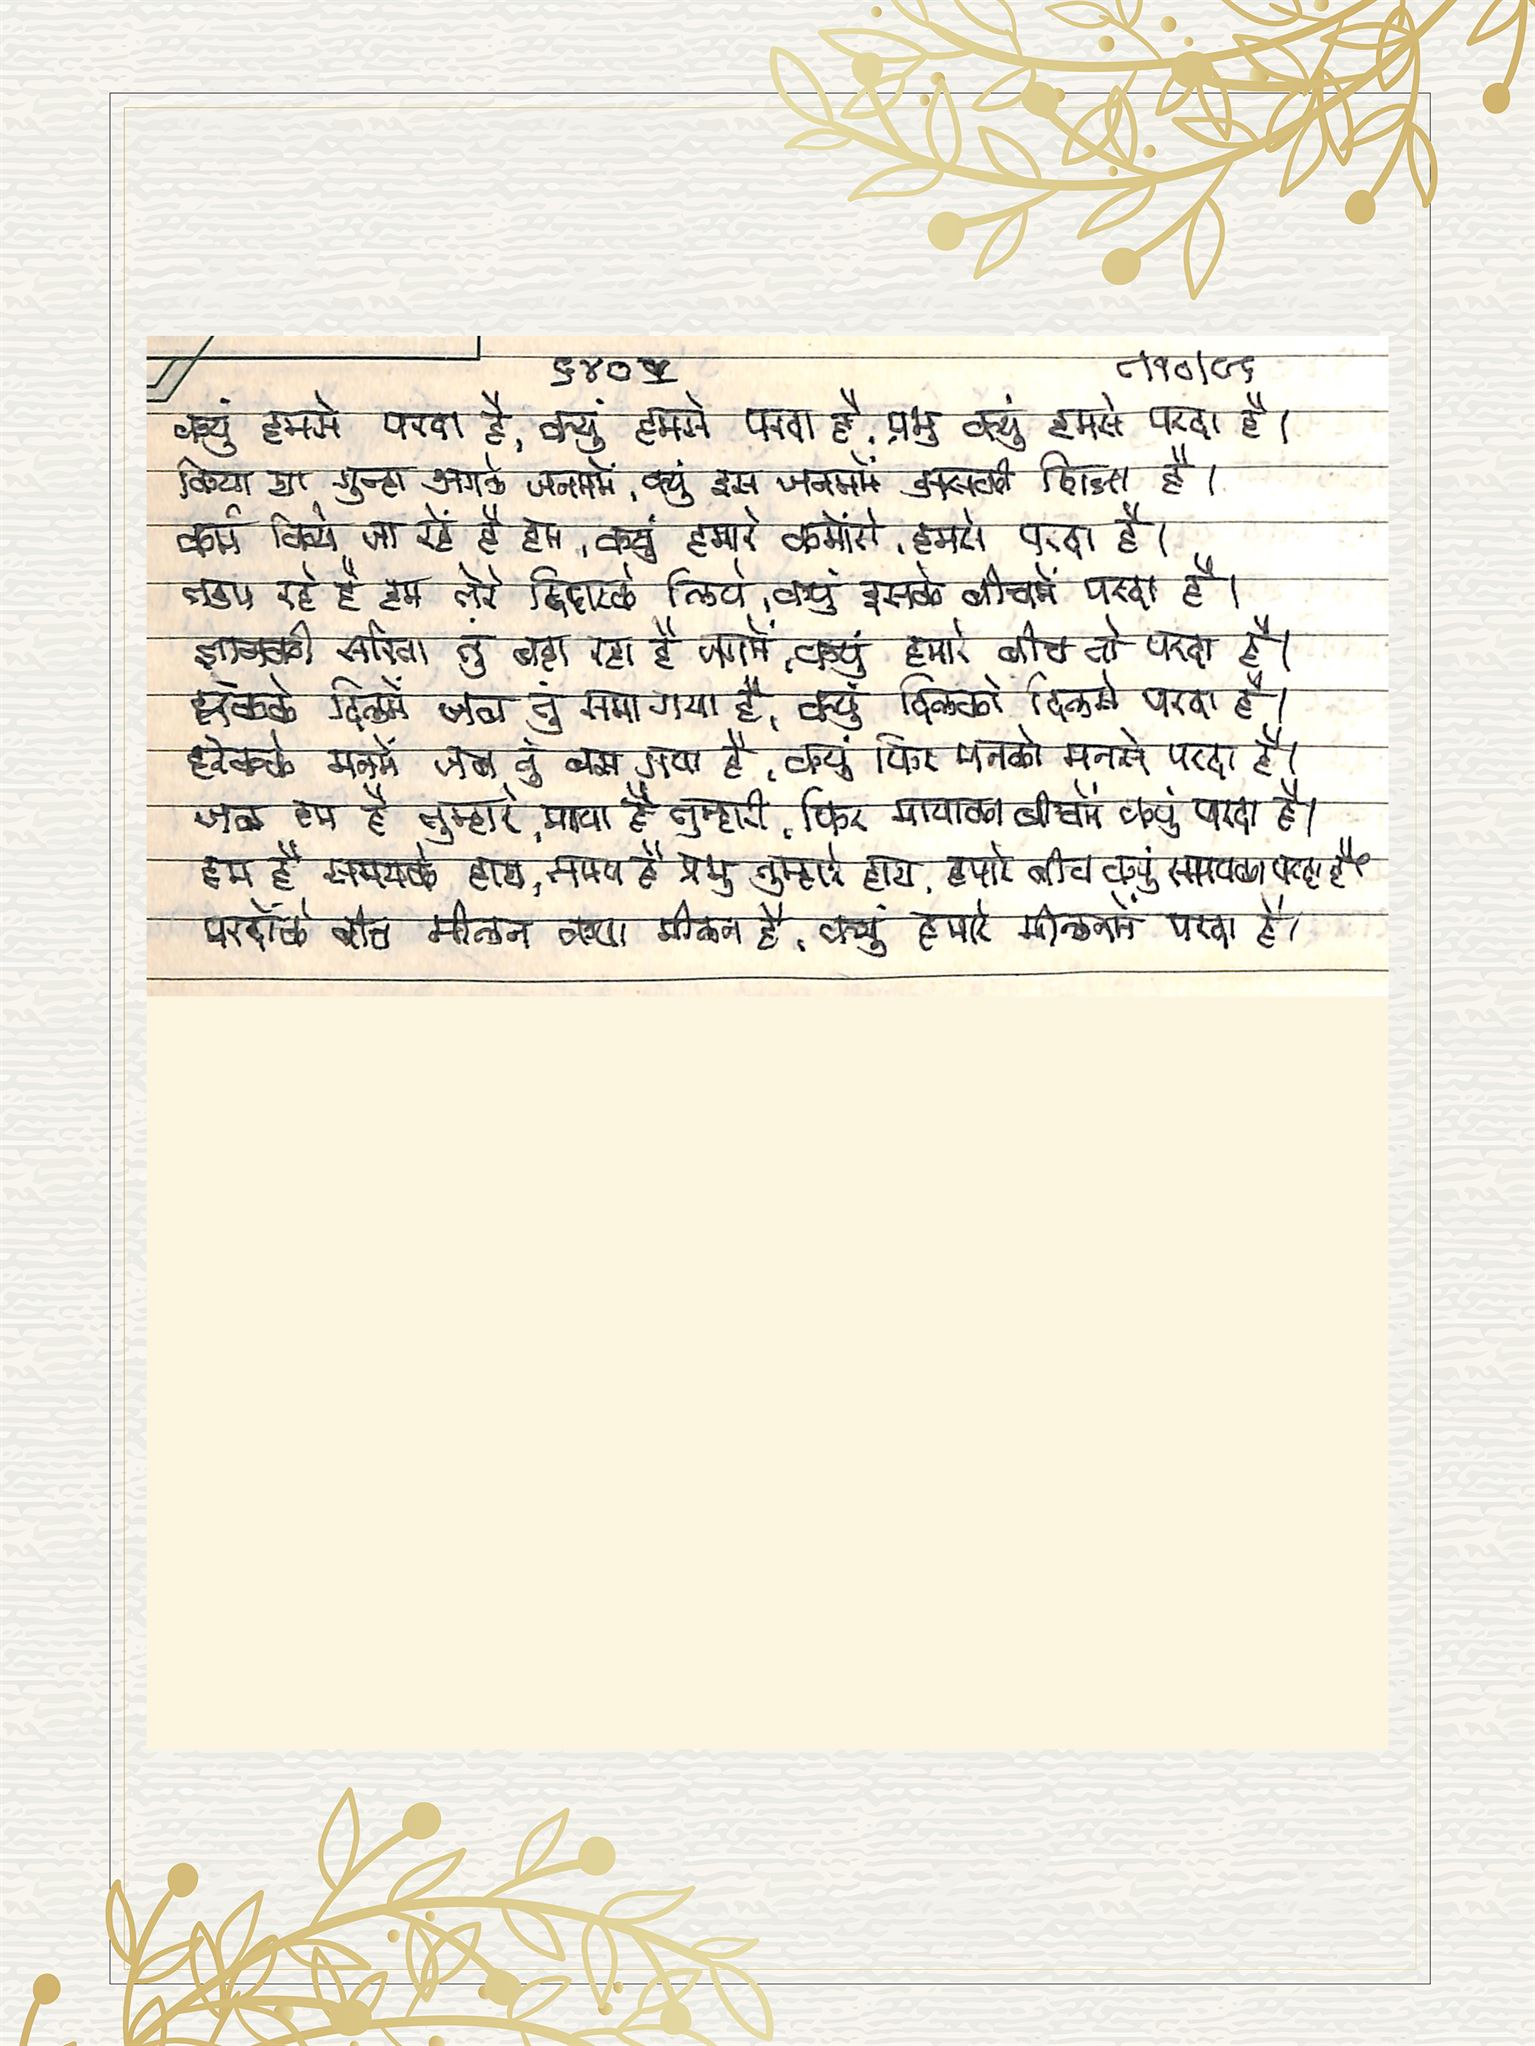 ६४०५ ८/१०/८६
क्युं हमसे परदा है, क्युं हमसे परदा है, प्रभु क्युं हमसे परदा है।
किया था गुन्हा अगले जनममें, क्युं इस जनममें उसकी शिक्षा है।
कर्म किये जा रहें है हम, क्युं हमारे कर्मोंसे, हमसे परदा है।
तडप रहे है हम तेरे दिदारके लिये, क्युं इसके बीचमें परदा है।
ज्ञानकी सरिता तुं बहा रहा है जगमें, क्युं हमारे बीच तो परदा है।
हरेकके दिलमें जब तुं समा गया है, क्युं दिलको दिलसे परदा है।
हरेकके मनमें जब तुं बस गया है, क्युं फिर मनको मनसे परदा है।
जब हम है तुम्हारे, माया है तुम्हारी, फिर मायाका बीचमें क्युं परदा है।
हम है समयके हाथ, समय है प्रभु तुम्हारे हाथ, हमारे बीच क्युं समयका परदा है।
परदोंके बीच मीलन क्या मीलन है, क्युं हमारे मीलनमें परदा है।